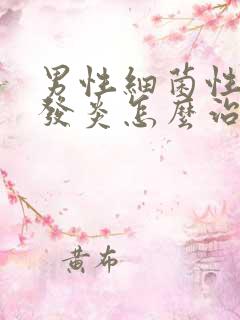 男性細菌性
發炎怎麼治
黃布